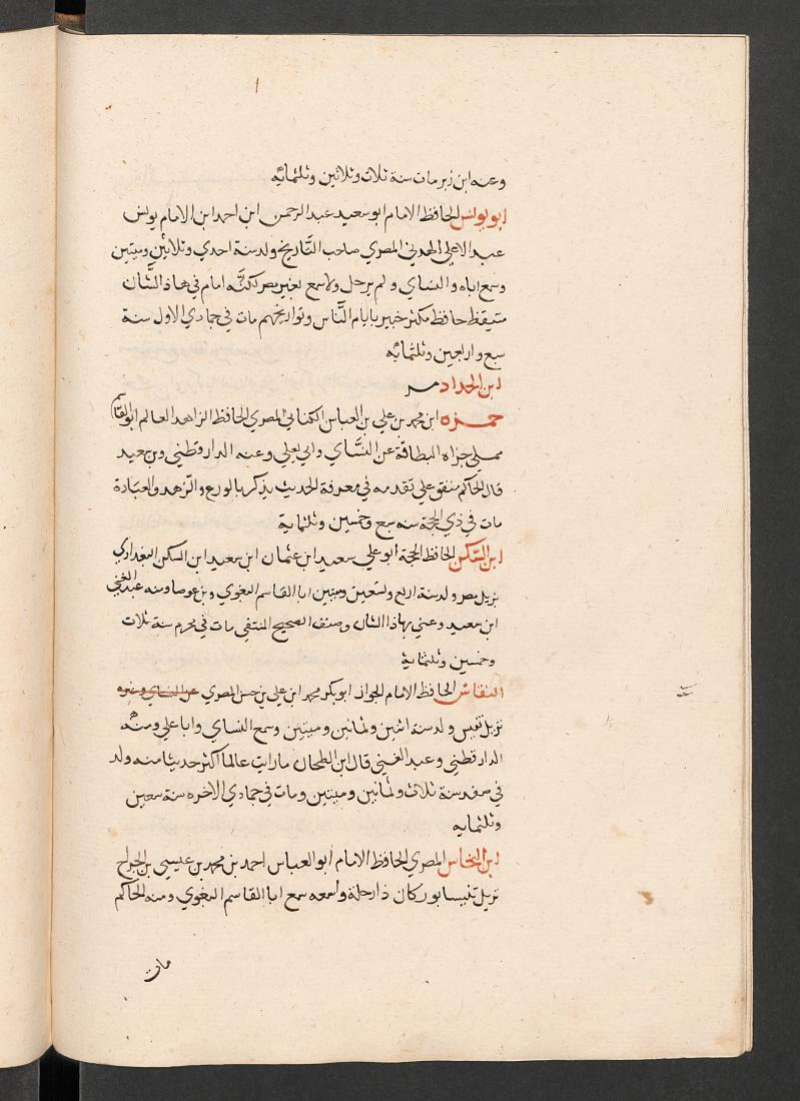 وعنه ابن زبر مات سنة ثلاث وثلاثين وثلثمائة
ابو يونس الحافظ الامام ابو سعيد عبد الرحمن ابن احمد ابن الامام يونس
عبد الاعلي المصري صاحب التاريخ ولد سنة احدي وثلاثين وميتين
وسمع اباه والنساي ولم يرحل ولا سمع بغير مصر لكنه امام في هاذ الشان
متيقظ حافظ مكثر خبير بايام الناس وتواريخهم مات في جمادي الاول سنة
سبع واربعين وثلثمائة
ابن الحداد مر
حمزه ابن محمد بن علي بن العباس الكناني المصري الحافظ الزاهد العالم ابو القاسم
مملي جزاه البطاقة عن النساي وابي يعلي وعنه الدارقطني وبن سعيد
قال الحاكم متفق علي تقدمه في معرفة الحديث يذكر بالورع والزهد والعبادة
مات في ذي الحجة سنه سبع وخمسين وثلثماية
ابن السكن الحافظ الحجة ابو علي سعيد ابن عثمان ابن سعيد ابن السكن البغدادي
نزيل مصر ولد سنة اربع وتسعين وميتين ابا القاسم البغوي وبن جوصا ومنه عبد الغني
ابن سعيد وعني بهاذا الشان وصنف الصحيح المنتقي مات في محرم سنة ثلاث
وخمسين وثلثماية
النقاش الحافظ الامام الجواد ابو بكر محمد ابن علي بن حسن المصري عن النساي وغيره
نزيل تنيس ولد سنة اثنين وثمانين وميتين وسمع النساي وابا علي ومنه
الدارقطني وعبد الغني قال ابن الطحان ما رايت عالما اكثر حديثا منه ولد
في سنة ثلاث وثمانين وميتين ومات في جمادي الاخره سنة سعين
وثلثمايه
ابن النحاس المصري الحافظ الامام ابو العباس احمد بن محمد بن عيسي بن الجراح
نزيل نيسابور كان ذا رحلة واسعه سمع ابا القاسم البغوي ومنه الحاكم
مات